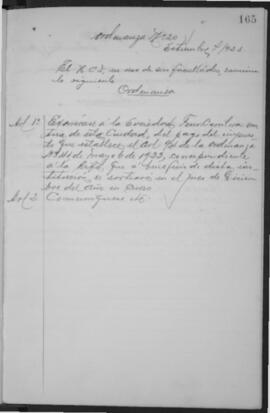 165
Ordenanza Nº 20
Setiembre, 1933
El H. C. D., en uso de sus facultades, sanciona
la siguiente
Ordenanza
Art 1º Exonérase á la Sociedad
de esta Ciudad, del pago del impues-
to que establece el Art. de la Ordenanza
de mayo 6 de 1933, correspondiente
á la Rifa, que á beneficio de dicha ins-
titución, se sorteará en el mes de Diciem-
bre del año en curso.
Art 2 Comuníquese etc.